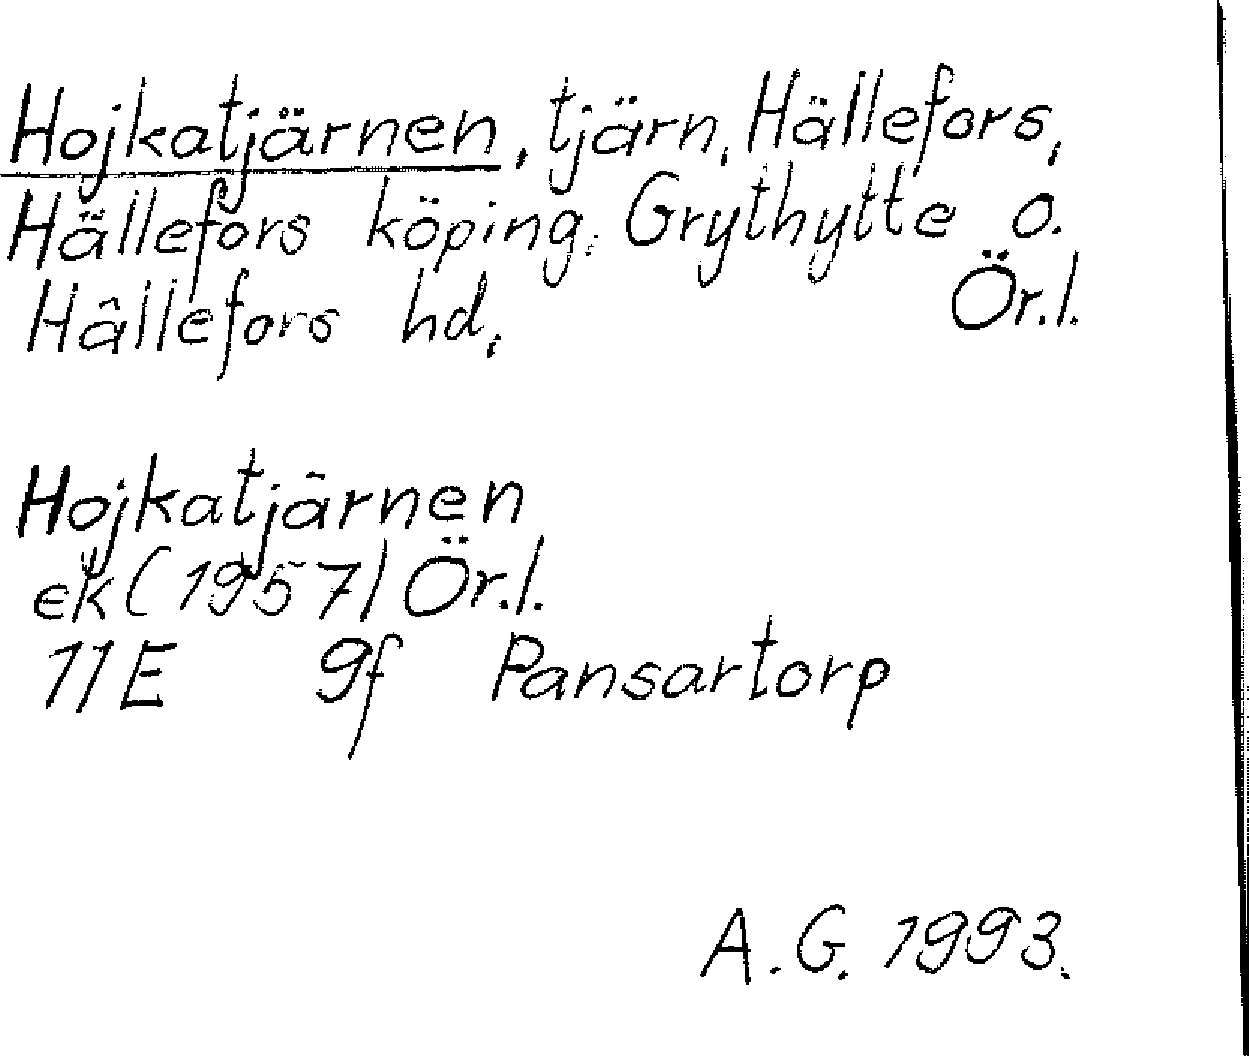 Hojkatjärnen, tjärn, Hällefors,
Hällefors köping, Grythytte o.
Hällefors hd, Ör.l.
Hojkatjärnen
ek (1957) Ör.l.
11E 9f Pansartorp
A.G. 1993.